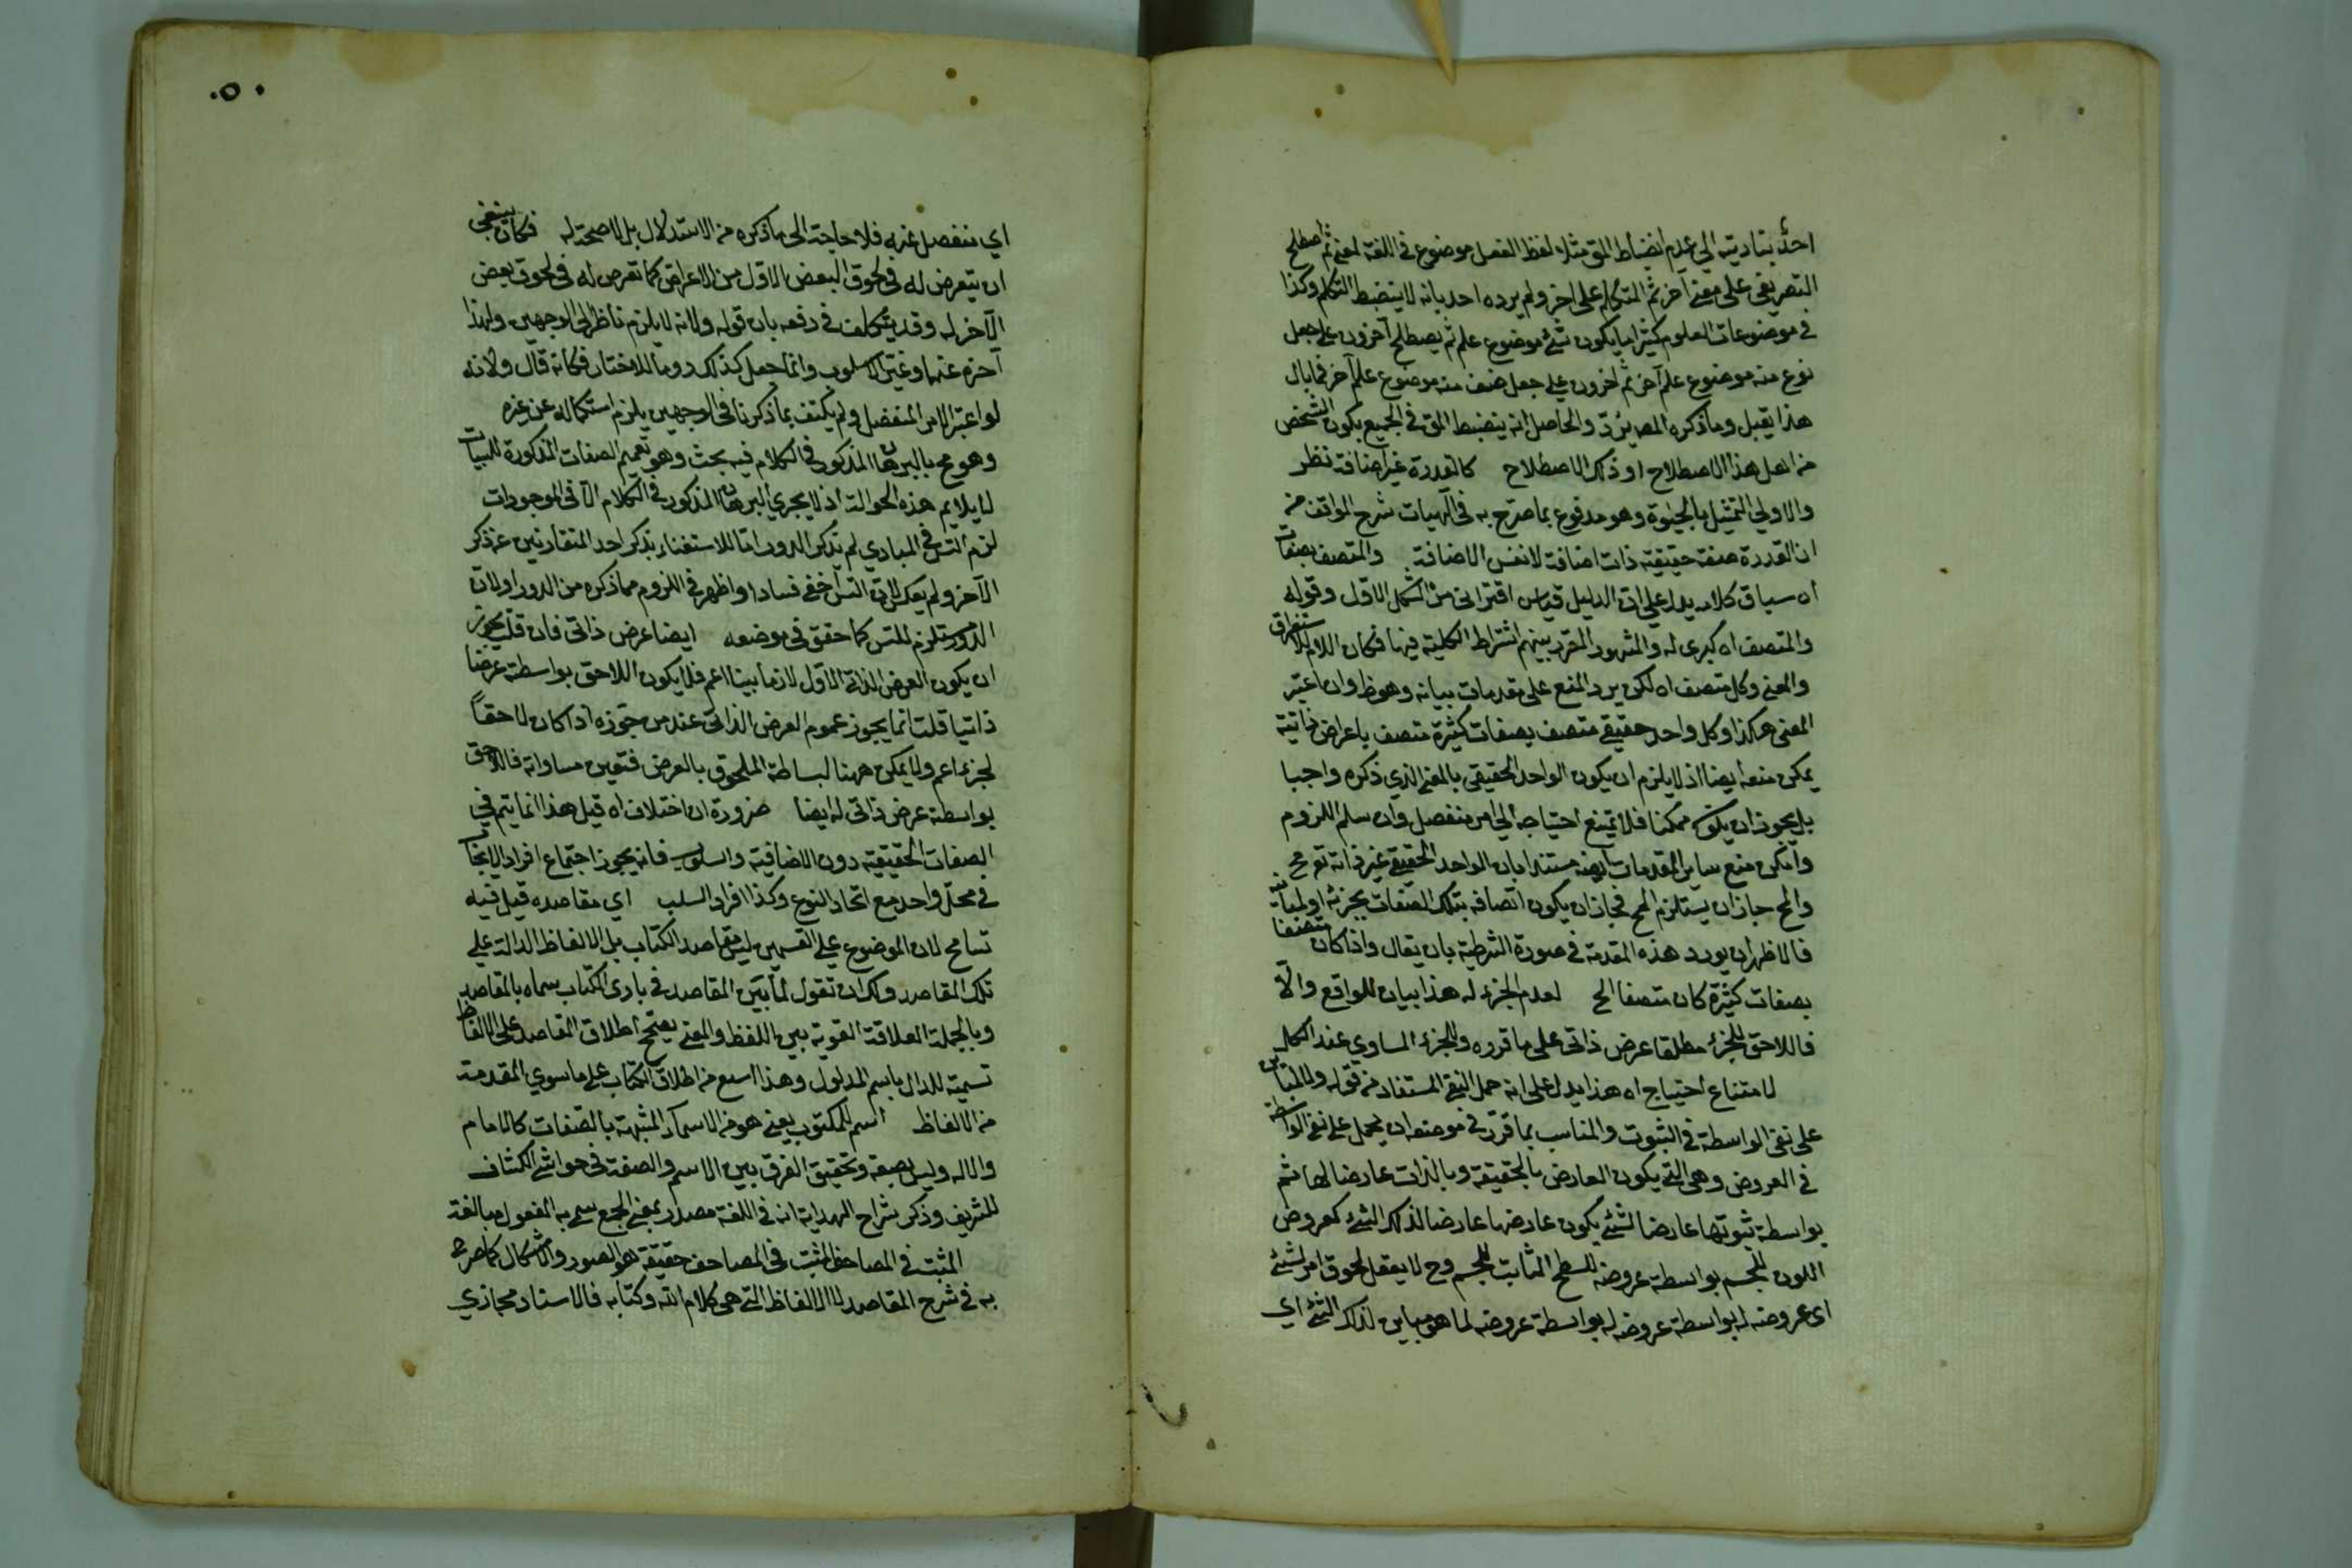 احد بتاديته الى عدم انضباط المق مثلا لفظ الفعل موضوع في اللغة لمعنى ثم اصطلح
التصريفي على معنى آخر ثم المتكلم على آخر ولم يرده احد بانه لا ينضبط التكلم وكذا
في موضوعات العلوم كثيرا ما يكون شئ موضوع علم ثم يصطلح آخرون على جعل
نوع منه موضوع علم آخر ثم آخرون على جعل صنف منه موضوع علم آخر فما بال
هذا يقبل وما ذكره المص يرد والحاصل انه ينضبط المق في الجميع بكون الشخص
من اهل هذا الاصطلاح او ذلك الاصطلاح كالقدرة غير اضافة نظر
والاولى التمثيل بالحيوة وهو مدفوع بما صرح به في آلهيات شرح المواقف من
ان القدرة صفة حقيقية ذات اضافة لا نفس الاضافة والمتصف بصفات
اه سياق كلامه يدل على ان الدليل قياس اقتراني من الشكل الاول وقوله
والمتصف اه كبرى له والمشهور المقرر بينهم اشتراط الكلية فيها فكان اللام للاستغراق
والمعنى وكل متصف اه لكن يرد المنع على مقدمات بيانه وهو ظ وان اعتبر
المعنى هكذا وكل واحد حقيقي متصف بصفات كثيرة متصف باعراض ذاتية
يمكن منعه ايضا اذ لا يلزم ان يكون الواحد الحقيقي بالمعنى الذي ذكره واجبا
بل يجوز ان يكون ممكنا فلا يمتنع احتياجه الى امر منفصل وان سلم اللزوم
وامكن منع ساير المقدمات ايضا مستندا بان الواحد الحقيقي غير ذاته تع مح
والمح جاز ان يستلزم المح فجاز ان يكون اتصافه بتلك الصفات بجزئه او لمباينه
فالاظهر ان يورد هذه المقدمة في صورة الشرطية بان يقال واذا كان متصفا
بصفات كثيرة كان متصفا الخ لعدم الجزء له هذا بيان للواقع والا
فاللاحق للجزء مطلقا عرض ذاتي على ما قرره وللجزء المساوي عند الكل
لامتناع احتياج اه هذا يدل على انه حمل النفي المستفاد من قوله ولا لمباين
على نفي الواسطة في الثبوت والمناسب بما قرر في موضعه ان يحمل على نفي الواسطة
في العروض وهي التي يكون العارض بالحقيقة وبالذات عارضا لها ثم
بواسطة ثبوتها عارضا لشئ يكون عارضها عارضا لذلك الشئ كعروض
اللون للجسم بواسطة عروضه للسطح الثابت للجسم وح لا يعقل لحوق امر لشئ
اى عروضه له بواسطة عروضه له بواسطة عروضه لما هو مباين لذلك الشئ اي
٥٠
اي منفصل عنه فلا حاجة الى ما ذكره من الاستدلال بل لا صحة له فكان ينبغي
ان يتعرض له في لحوق البعض الاول من الاعراض كما تعرض له في لحوق بعض
الآخر له وقد يتكلف في دفعه بان قوله ولانه لا يلزم ناظر الى الوجهين ولهذا
آخره عنهما وغير الاسلوب وانما جعل كذلك روما للاختصار فكانه قال ولانه
لو اعتبر الامر المنفصل ولم يكتف بما ذكرنا في الوجهين يلزم استكماله عن غيره
وهو مح بالبرهان المذكور في الكلام فيه بحث وهو تعميم الصفات المذكورة للسببيات
لا يلايم هذه الحوالة اذ لا يجري البرهان المذكور في الكلام الا في الموجودات
لزم التس في المبادي لم يذكر الدور اما للاستغناء بذكر احد المتقارنين عن ذكر
الآخر ولم يعكس لان التس اخفى فسادا واظهر في اللزوم مما ذكره من الدور او لان
الدور مستلزم للتس كما حقق في موضعه ايضا عرض ذاتي فان قلت يجوز
ان يكون العرض الذاتي الاول لازما بينا اعم فلا يكون اللاحق بواسطته عرضا
ذاتيا قلت انما يجوز عموم العرض الذاتي عند من جوزه اذا كان لاحقا
لجزء اعم ولا يمكن ههنا لبساطة الملحوق بالعرض فتعين مساواته فاللاحق
بواسطة عرض ذاتي له ايضا ضرورة ان اختلاف اه قيل هذا انما يتم في
الصفات الحقيقية دون الاضافية والسلوب فانه يجوز اجتماع افراد الايجاب
في محل واحد مع اتحاد النوع وكذا افراد السلب اي مقاصده قيل فيه
تسامح لان الموضوع على القسمين ليس مقاصد الكتاب بل الالفاظ الدالة على
تلك المقاصد ولك ان تقول لما بين المقاصد في بادى الكتاب سماه بالمقاصد
وبالجملة العلاقة القوية بين اللفظ والمعنى يصحح اطلاق المقاصد على الالفاظ
تسمية للدال باسم المدلول وهذا اسع من اطلاق الكتاب على ما سوى المقدمة
من الالفاظ اسم للمكتوب يعني هو من الاسماء المشبهة بالصفات كالامام
والاله وليس بصفة وتحقيق الفرق بين الاسم والصفة في حواشي الكشاف
للشريف وذكر شراح الهداية انه في اللغة مصدر بمعنى الجمع سمي به المفعول مبالغة
المثبت في المصاحف المثبت في المصاحف حقيقة هو الصور والاشكال كما صرح
به في شرح المقاصد لا الالفاظ التي هي كلام الله وكتابه فالاسناد مجازي